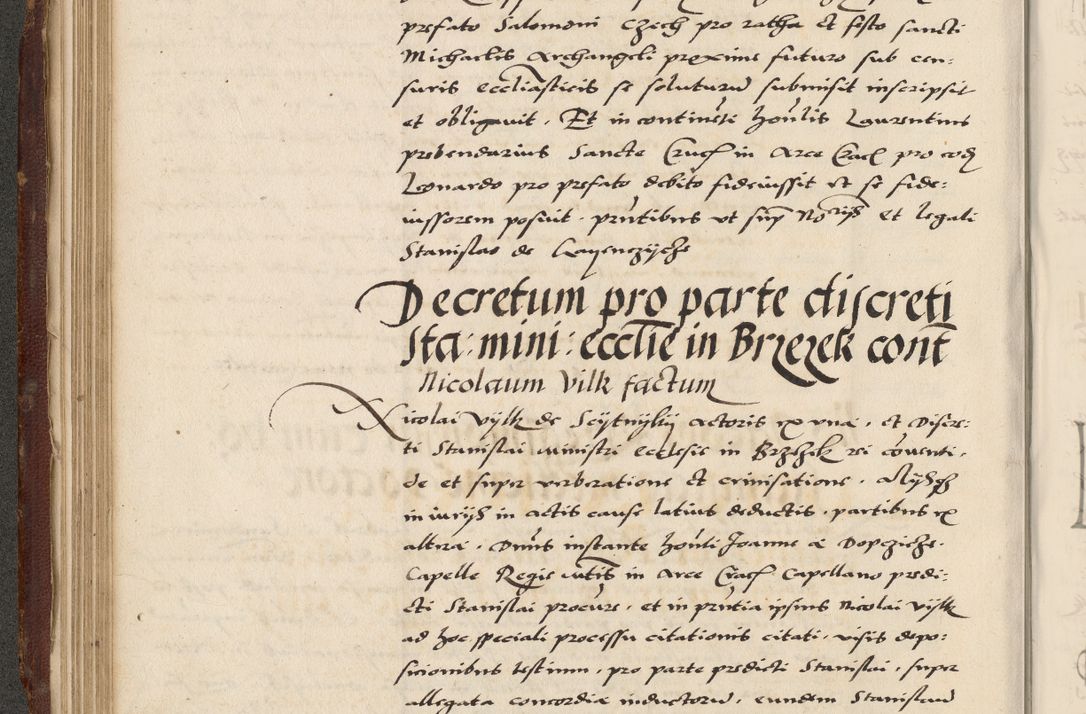 prefato Salomoni Czech pro ratha et festo sancti
Michaelis Archangeli proxime futuro sub cen:
suris eccliasticis se soluturū submisit inscripsit
et obligauit. Et in continēti honlis Laurentius
prebendarius Sancte Cruc in Arce Crac pro eod
Leonardo pro prefato debito fideiussit et se fide:
iussorem posuit. pn̄tibus ut sup et legali
Stanislao de
Decretum pro parte discreti
Sta: mini: eccl̄ie in Brzezek cont̄
Nicolaum Vilk factum
Nicolai Vylk de actoris ex vna, et Discre:
ti Stanislai ministri ecclesie in Brzezek rei cōuenti,
de et super verberatione et crinisatione,
iniurijs in actis cause latius deductis, partibus ex
altera. Dnus instante honli Joanne a Dopczicze
Capelle Regie in Arce Crac Capellano predi:
cti Stanislai procure, et in pn̄tia ipsius Nicolai Vylk
ad hoc speciali processu citationis citati, visis depo:
sicionibus testium, pro parte predicti Stanislai, super
allegata concordia inductorū, eundem Stanislaū